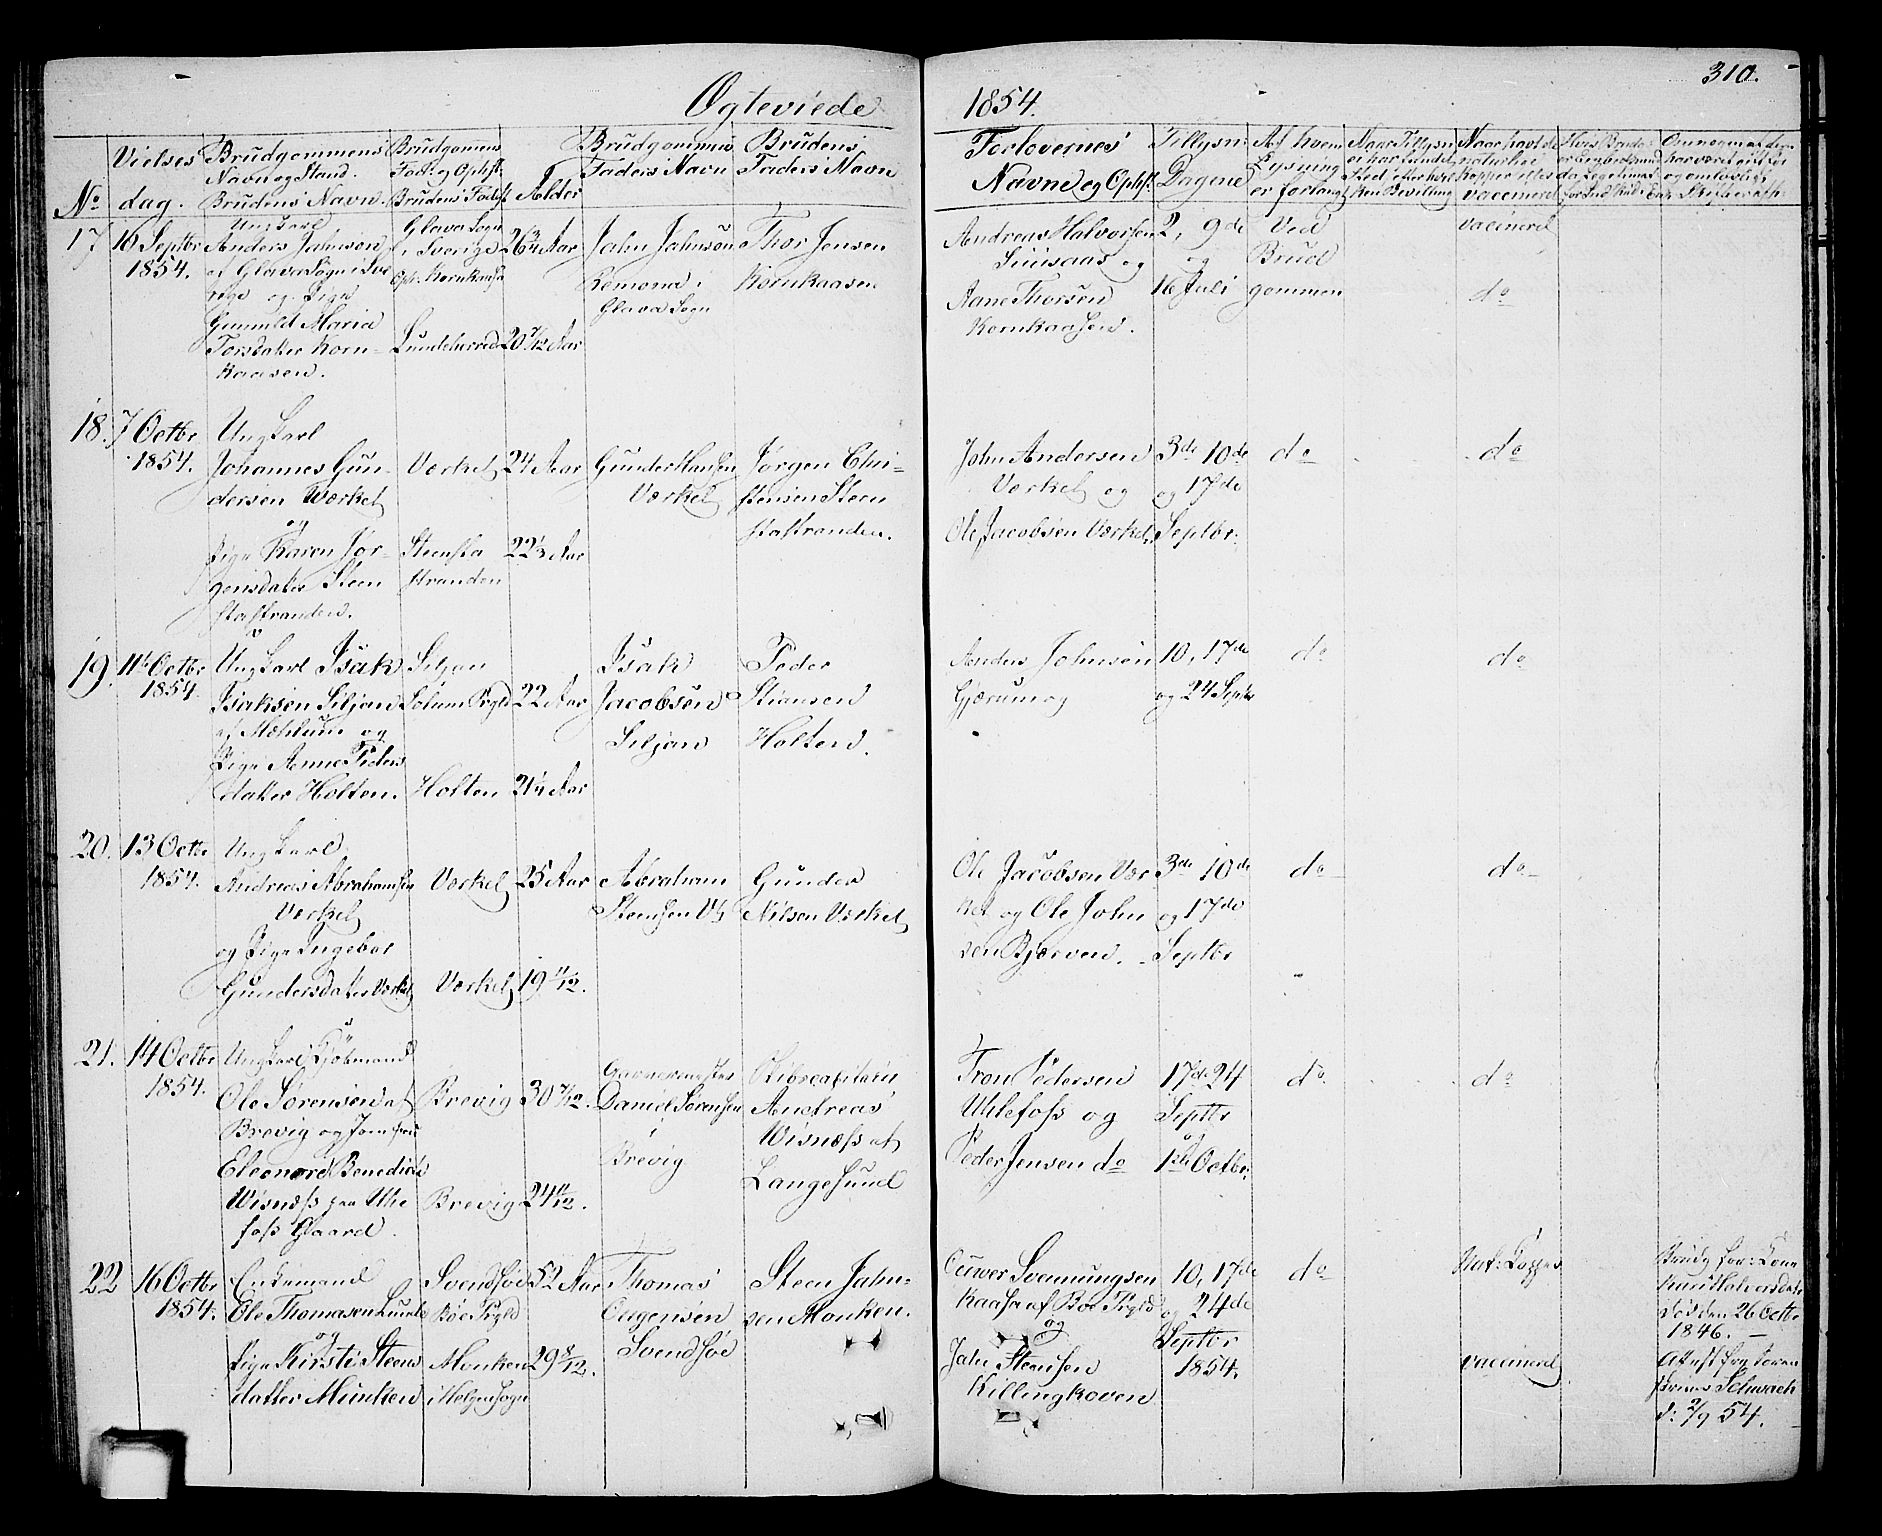 310.
Ogteviede
1854.
No
Vielses
dag.
Brudgommens
Navn og Stand.
Brudens Navn
Brudgomens
Fød. og Oph.
Brudens Fødest
Alder
Brudgommens
Faders Navn
Brudens
Faders Navn
Forlovernes
Navne og Oph.
Tillysn
Dagene
Af hvem
Lysning
er forlangt
17
16 Septbr
1854.
Ungkarl
Anders Jahnsøn
af Glava Sogn i Sve
rige og Pige
Gunuld Maria
Torsdatter Korn-
kaasen.
Glava Sogn
i Sverige
Oph. Kornkaasa
Lundeherred
26 3/4 Aar
20 7/12 Aar
Jahn Jahnsøn
Remona i
Glava Sogn
Thor Jensen
Kornkaasen
Andreas Halvorsen
og
Aane Thorsen
Kornkaasen.
2, 9de
og
16 Juli
Ved
Brud
gommen
vacineret
do
18.
7 Octbr
1854.
Ungkarl
Johannes Gun-
dersen Værket
og
Pige Karen Jør-
gensdatter Steen
stastranden.
Værket
Steensta
stranden
24 Aar
22 1/3 Aar
Gunder Hansen
Værket
Jørgen Chri-
stensen Steen
stastranden.
John Andersen
Værket og
Ole Jacobsen Værket.
3de 10de
og 17de
Septbr.
do
do
19.
11te Octbr
1854.
Ungkarl Isak
Isaksen Siljan
af Mæhlum og
Pige Anne Peders
datter Holten.
Siljan
Solum Prgld
Holten
22 Aar
21 1/4 Aar
Isak
Jacobsen
Siljan
Peder
Stiansen
Holten.
Anders Johnsen
Gjærum og
10, 17de
og 24 Septbr
do
do
20.
13 Octbr
1854.
Ungkarl
Andreas Abrahamsen
Værket
og Pige Ingebor
Gundersdatter Værket
Værket
Værket
25 Aar
19 11/12.
Abraham
Steensen
Gunder
Nilsen Værket
Ole Jacobsen Vær
ket og Ole John
sen Bjerven.
3de 10de
og 17de
Septbr
do
do
21.
14 Octbr
1854.
Ungkarl Kjøbmand
Ole Sørensen af
Brevig og Jomfru
Eleonore Benedicte
Wisness paa Uhle
foss Gaard.
Brevig
Brevig
30 7/12.
24 11/12.
Daniel Sørensen
Brevig
Skibscapitain
Andreas
Wisness af
Langesund
Tron Pedersen
Uhlefoss og
Peder Jensen do
17de 24
Septbr
og
1ste Octbr.
do.
do
22
16 Octbr
1854.
Enkemand
Ole Thomasen Lunde
og
Pige Kirsti Steens
datter Munken
Svendsøe
Bøe Prgld
Monken
i Melgen Sogn
52 Aar
29 8/12.
Thomas
Svendsøe
Steen Jahn-
sen Monken.
Svennungsen
Kaasa af Bøe Prgld
og
Jahn Steensen
Killingkoven
10, 17de
og 24de
Septbr
1854.
do
Nat: Kopper
vaccineret
Brudg for: Kone
Kari Halvorsdatter
død den 26 Octbr
1846. —
Attest fra Soren
skriver Schwach
d: 2/9 54.